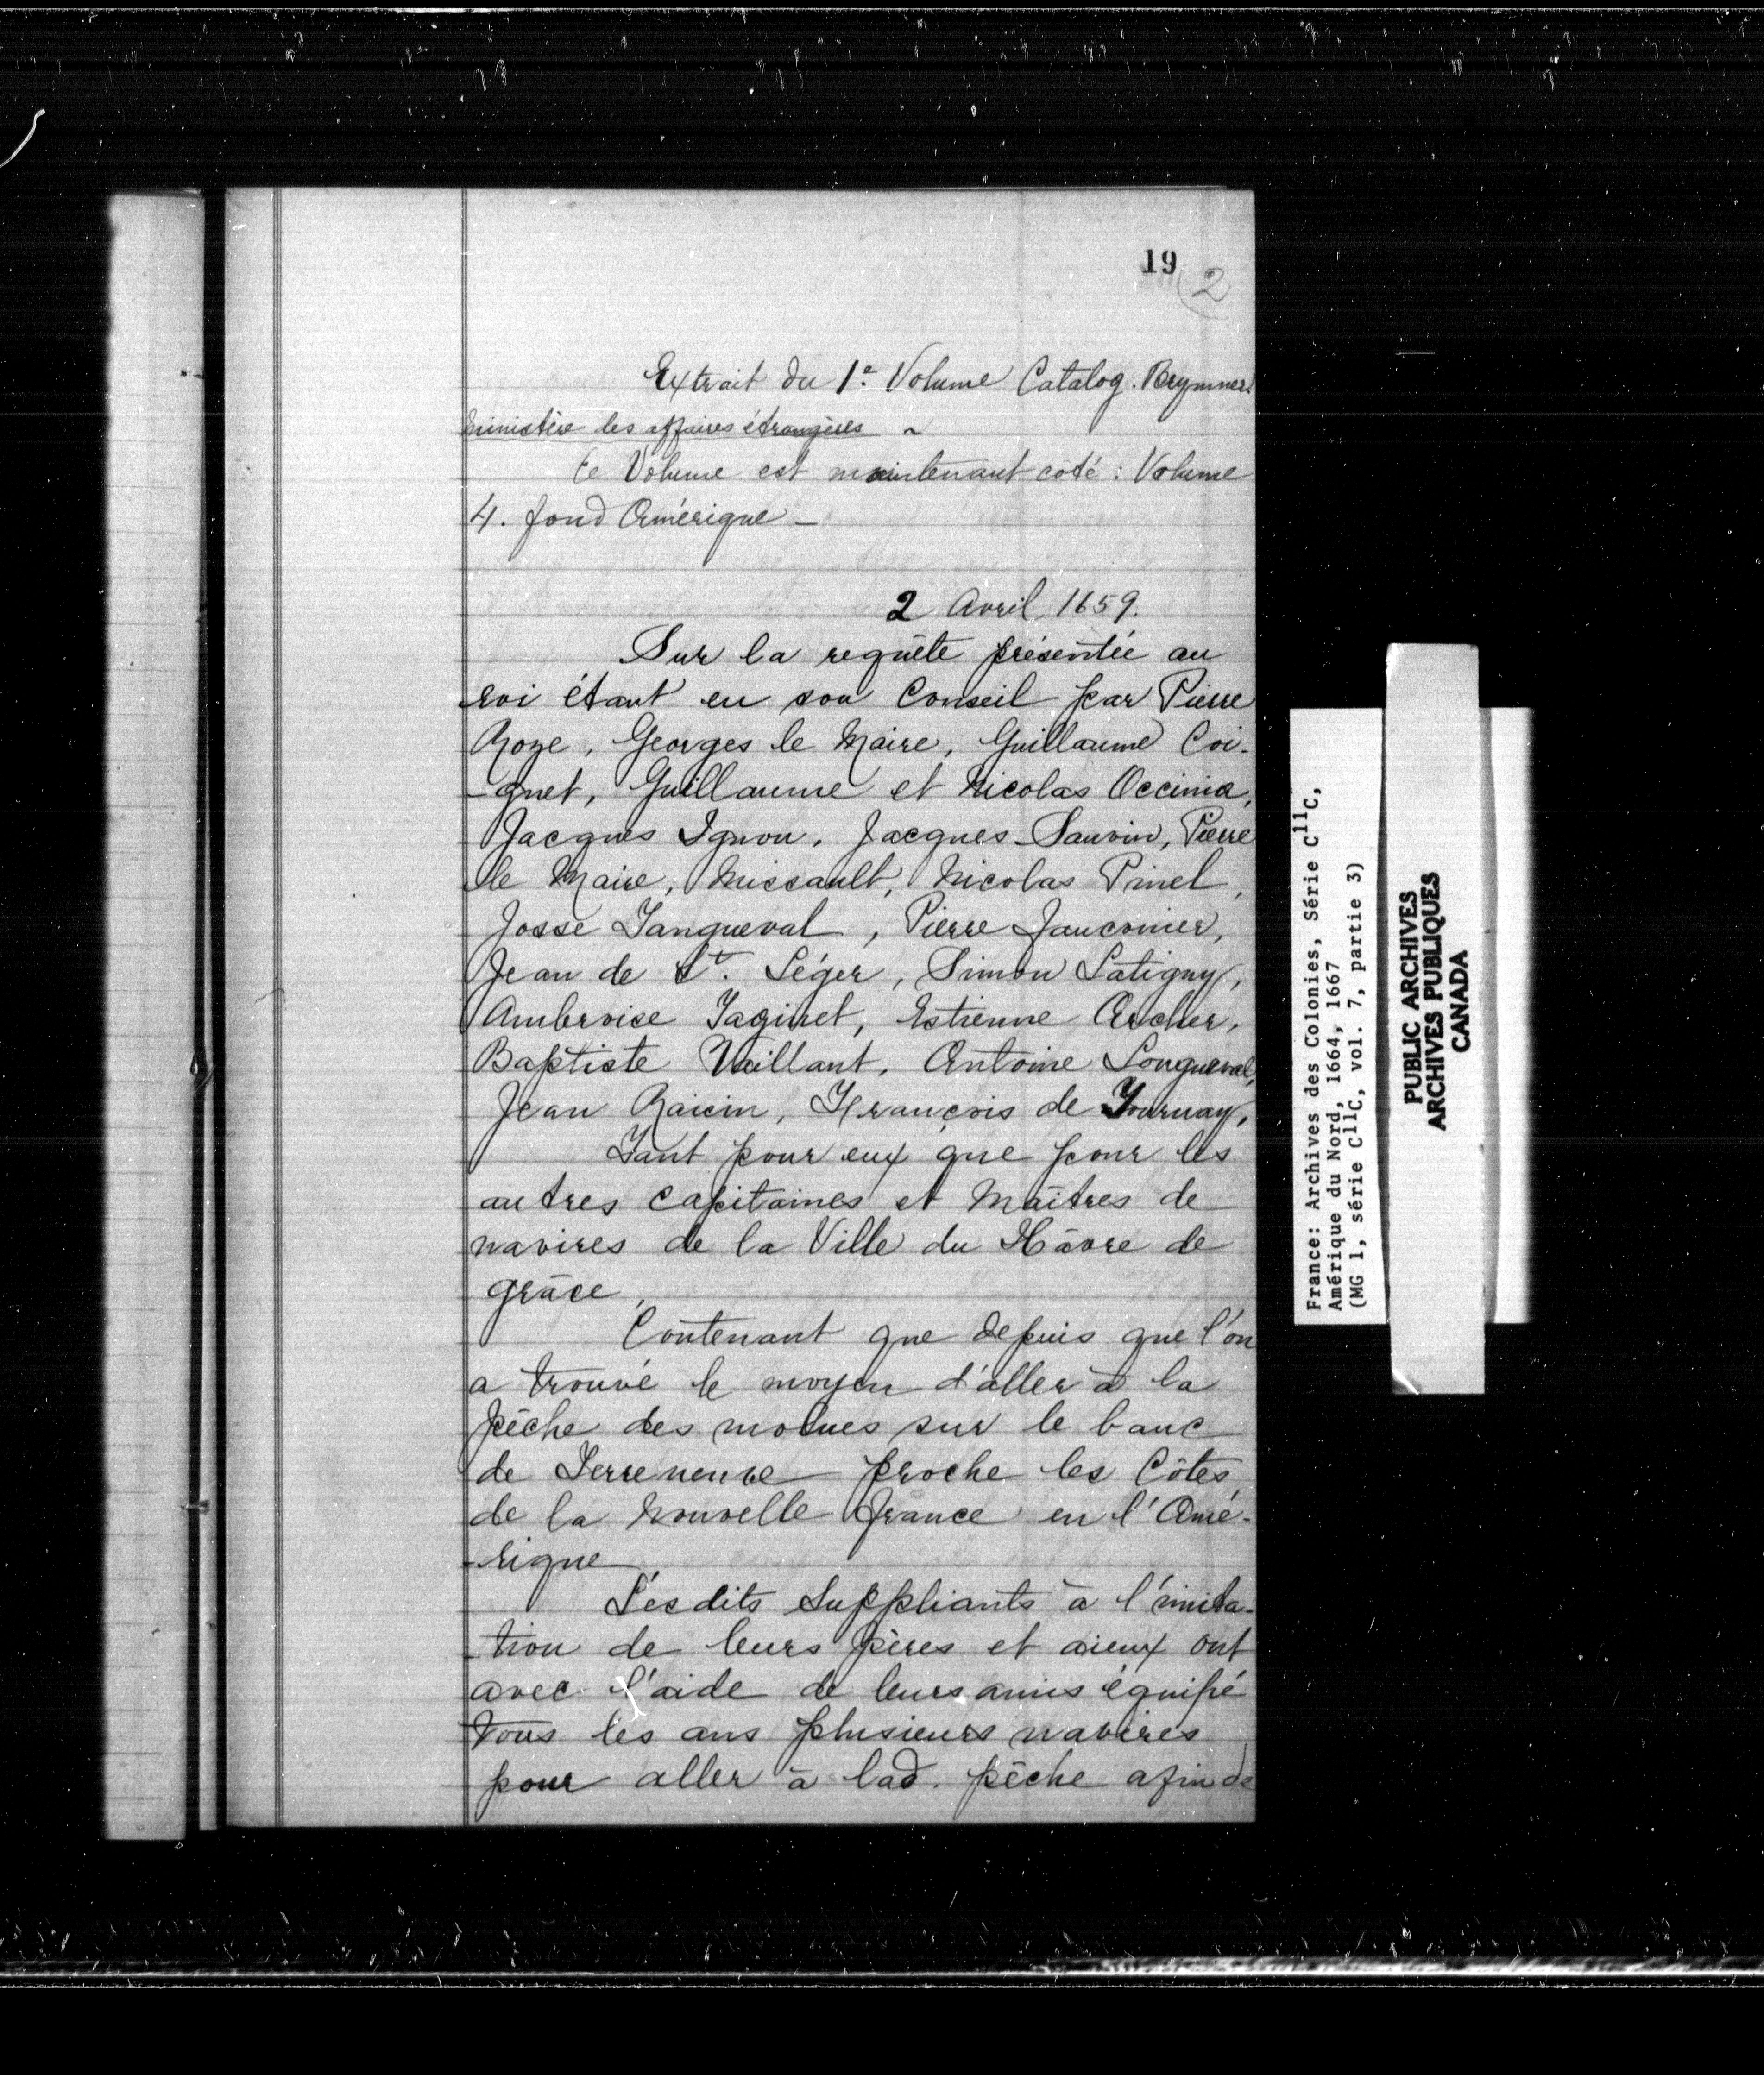 19
2
Extrait du 1e. Volume Catalog. Brymner.
Ministère des affaires étrangères ~
Ce Volume est maintenant coté : Volume
4. fond Amérique -
2 Avril 1659.
Sur la requête présentée au
roi étant en son Conseil par Pierre
Roze, Georges le Maire, Guillaume Coi-
-gnet, Guillaume et Nicolas
Jacques Ignou, Jacques Sauvin, Pierre
le Maire, Missault, Nicolas Pinel,
Josse Tangueval, Pierre Jauconier,
Jean de St. Léger, Simon Latigny,
Ambroise Taginet, Estienne Archer,
Baptiste Vaillant, Antoine Longueval,
Jean Raicin, François de Tournay,
Tant pour eux que pour les
autres capitaines et Maîtres de
navires de la Ville du Hâvre de
grâce,
Contenant que depuis que l'on
a trouvé le moyen d'aller à la
pêche des molues sur le banc
de Terreneuve proche les Côtes
de la Nouvelle france en l'Amé-
-rique
Lesdits Suppliants à l'imita-
-tion de leurs pères et aieux ont
avec l'aide de leurs amis équipé
tous les ans plusieurs navires
pour aller à lad. pêche afin de
France: Archives des Colonies, Série C11C,
Amérique du Nord, 1664, 1667
(MG 1, série C11C, vol. 7, partie 3)
PUBLIC ARCHIVES
ARCHIVES PUBLIQUES
CANADA